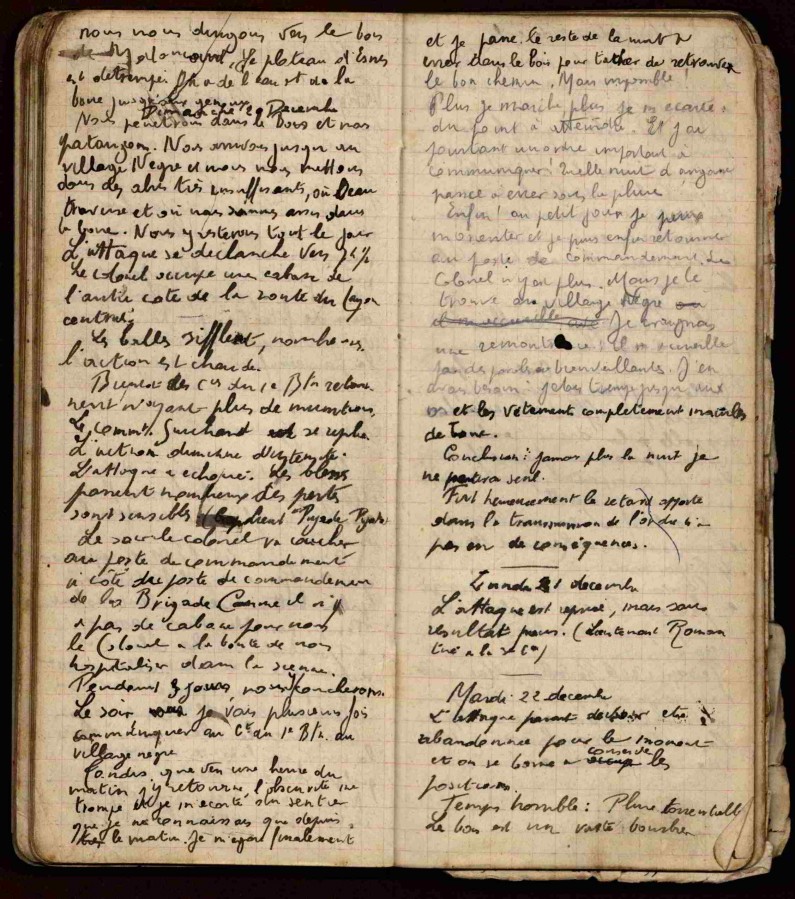 nous nous dirigeons vers le bois
de Malancourt. Le plateau d'Esnes
est détrempé. Il y a de l'eau et de la
boue jusqu'aux genoux.
Dimanche 20 Decembre
Nous pénétrons dans le bois et nous
pataugeons. Nous arrivons jusqu'au
village Nègre et nous nous mettons
dans des abris très insuffisants, où l'eau
traverse et où nous sommes assis dans
la boue. Nous y restons tout le jour
L'attaque se déclanche vers
Le colonel occupe une cabane de
l'autre côté de la route du layon
central.
Les balles sifflent, nombreuses.
l'action est chaude.
Bientôt des Cies du 1e Btn retour
nent n'ayant plus de munitions
Le Commt. se replie
L'action diminue d'intensité.
L'attaque a echoué. Les blessés
passent nombreux des pertes
sont sensibles
Le soir le colonel va coucher
au poste de commandement
à côté du poste de commandement
de la Brigade Comme il n'y
a pas de cabane pour nous
le Colonel a la bonté de nous
hospitaliser dans la sienne.
Pendant 3 jours nous y coucherons.
Le soir je vais plusieurs fois
communiquer au Ct du 1e Btn au
village nègre
Tandis que vers une heure du
matin j'y retourne, l'obscurité me
trompe et je m'écarte du sentier
que je ne connaissais que depuis
le matin. Je m'égare finalement
et je passe le reste de la nuit à
errer dans le bois pour tâcher de retrouver
le bon chemin. Mais impossible!
Plus je marche plus je m'écarte
du point à atteindre. Et j'ai
pourtant un ordre important à
communiquer! Quelle nuit d'angoisse
passée à errer sous la pluie
Enfin! au petit jour je peux
m'orienter et je puis enfin retourner
au poste de commandement. Le
Colonel n'y est plus. Mais je le
trouve au village Nègre
Je craignais
une remontrance! Il m'accueille
par des paroles bienveillantes. J'en
avais besoin: j'étais trempé jusqu'aux
os et les vêtements complètement maculés
de boue.
Conclusion: jamais plus la nuit je
ne partirai seul.
Fort heureusement le retard apporté
dans la transmission de l'ordre n'a
pas eu de conséquences.
Lundi 21 decembre
L'attaque est reprise, mais sans
résultat précis. (Lieutenant Roman
tué à la Cie)
Mardi 22 decembre
L'attaque parait devoir etre
abandonnée pour le moment
et on se borne a conserver les
positions.
Temps horrible: Pluie torrentielle
Le bois est un vaste bourbier